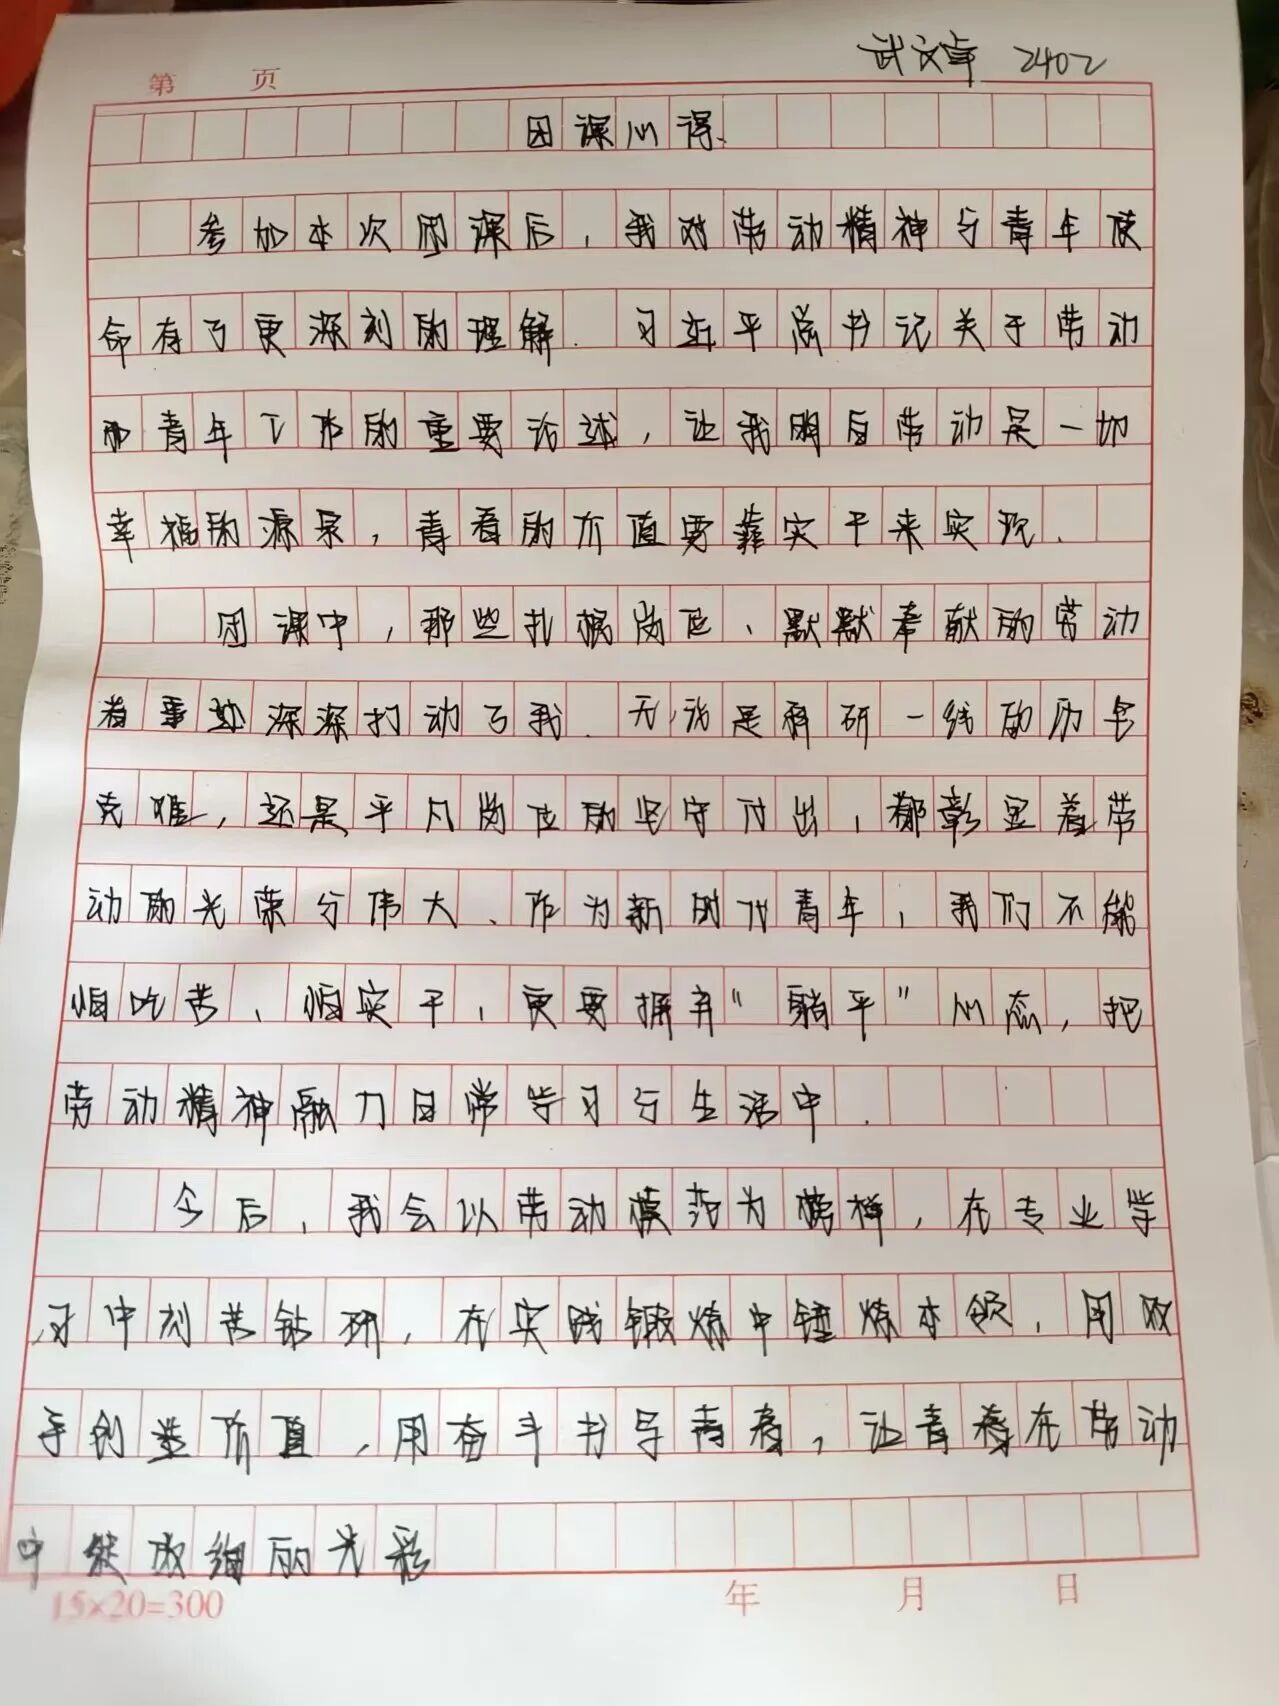 武文卓 2402
第 页
团课心得.
参加本次团课后，我对劳动精神与青年使
命有了更深刻的理解.习近平总书记关于劳动
和青年工作的重要论述，让我明白劳动是一切
幸福的源泉，青春的价值要靠实干来实现.
团课中，那些扎根岗位、默默奉献的劳动
者事迹深深打动了我.无论是科研一线的历
克难，还是平凡岗位的坚守付出，都彰显着劳
动的光荣与伟大、作为新时代青年，我们不能
怕吃苦、怕实干，更要摒弃“躺平”心态，把
劳动精神融入日常学习与生活中.
今后，我会以劳动模范为榜样，在专业学
习中刻苦钻研，在实践锻炼中锤炼本领，用双
手创造价值，用奋斗书写青春，让青春在劳动
中绽放绚丽光彩
15×20=300
年 月 日